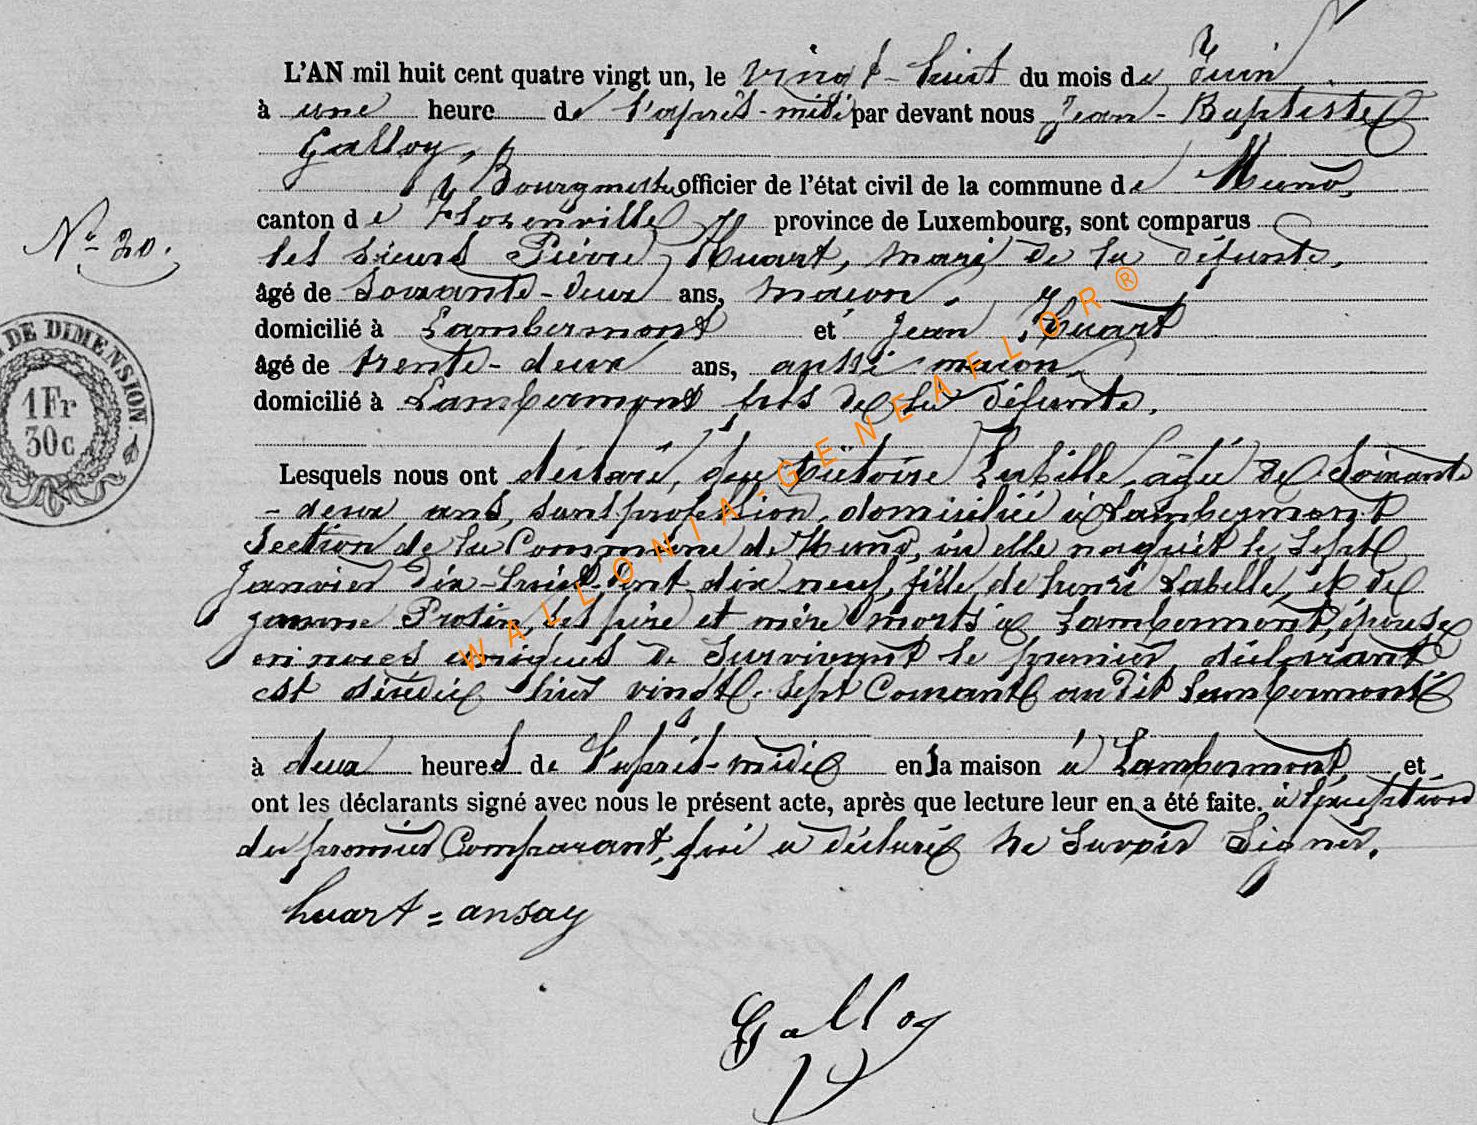 L'AN mil huit cent quatre vingt un, le vingt-huit du mois de Juin
à une heure de l'après-midi par devant nous Jean-Baptiste
Galloy,
Bourgmestre officier de l'état civil de la commune de Muno,
canton de Florenville province de Luxembourg, sont comparus
N° 20.
les sieurs Pierre Huart, mari de la défunte,
âgé de soixante-deux ans, maçon,
domicilié à Lambermont et Jean Huart
âgé de trente-deux ans, aussi maçon,
domicilié à Lambermont fils de la défunte.
TIMBRE DE DIMENSION
1 Fr
30c
Lesquels nous ont déclaré, que Victoire Labille, âgée de soixante
-deux ans, sans profession, domiciliée à Lambermont
section de la Commune de Muno, où elle naquit le sept
Janvier dix-huit-cent-dix neuf, fille de henri Labille, et de
jeanne Protin, ses père et mère morts à Lambermont, épouse
en noces uniques de survivant le premier déclarant
est décédée hier vingt-sept Courant au dit Lambermont
à deux heures de l'après-midi en sa maison à Lambermont, et
ont les déclarants signé avec nous le présent acte, après que lecture leur en a été faite. à l'exception
du premier Comparant, qui a déclaré ne savoir signer.
huart = ansay
Galloy
WALLONIA-GENEAFLOR®